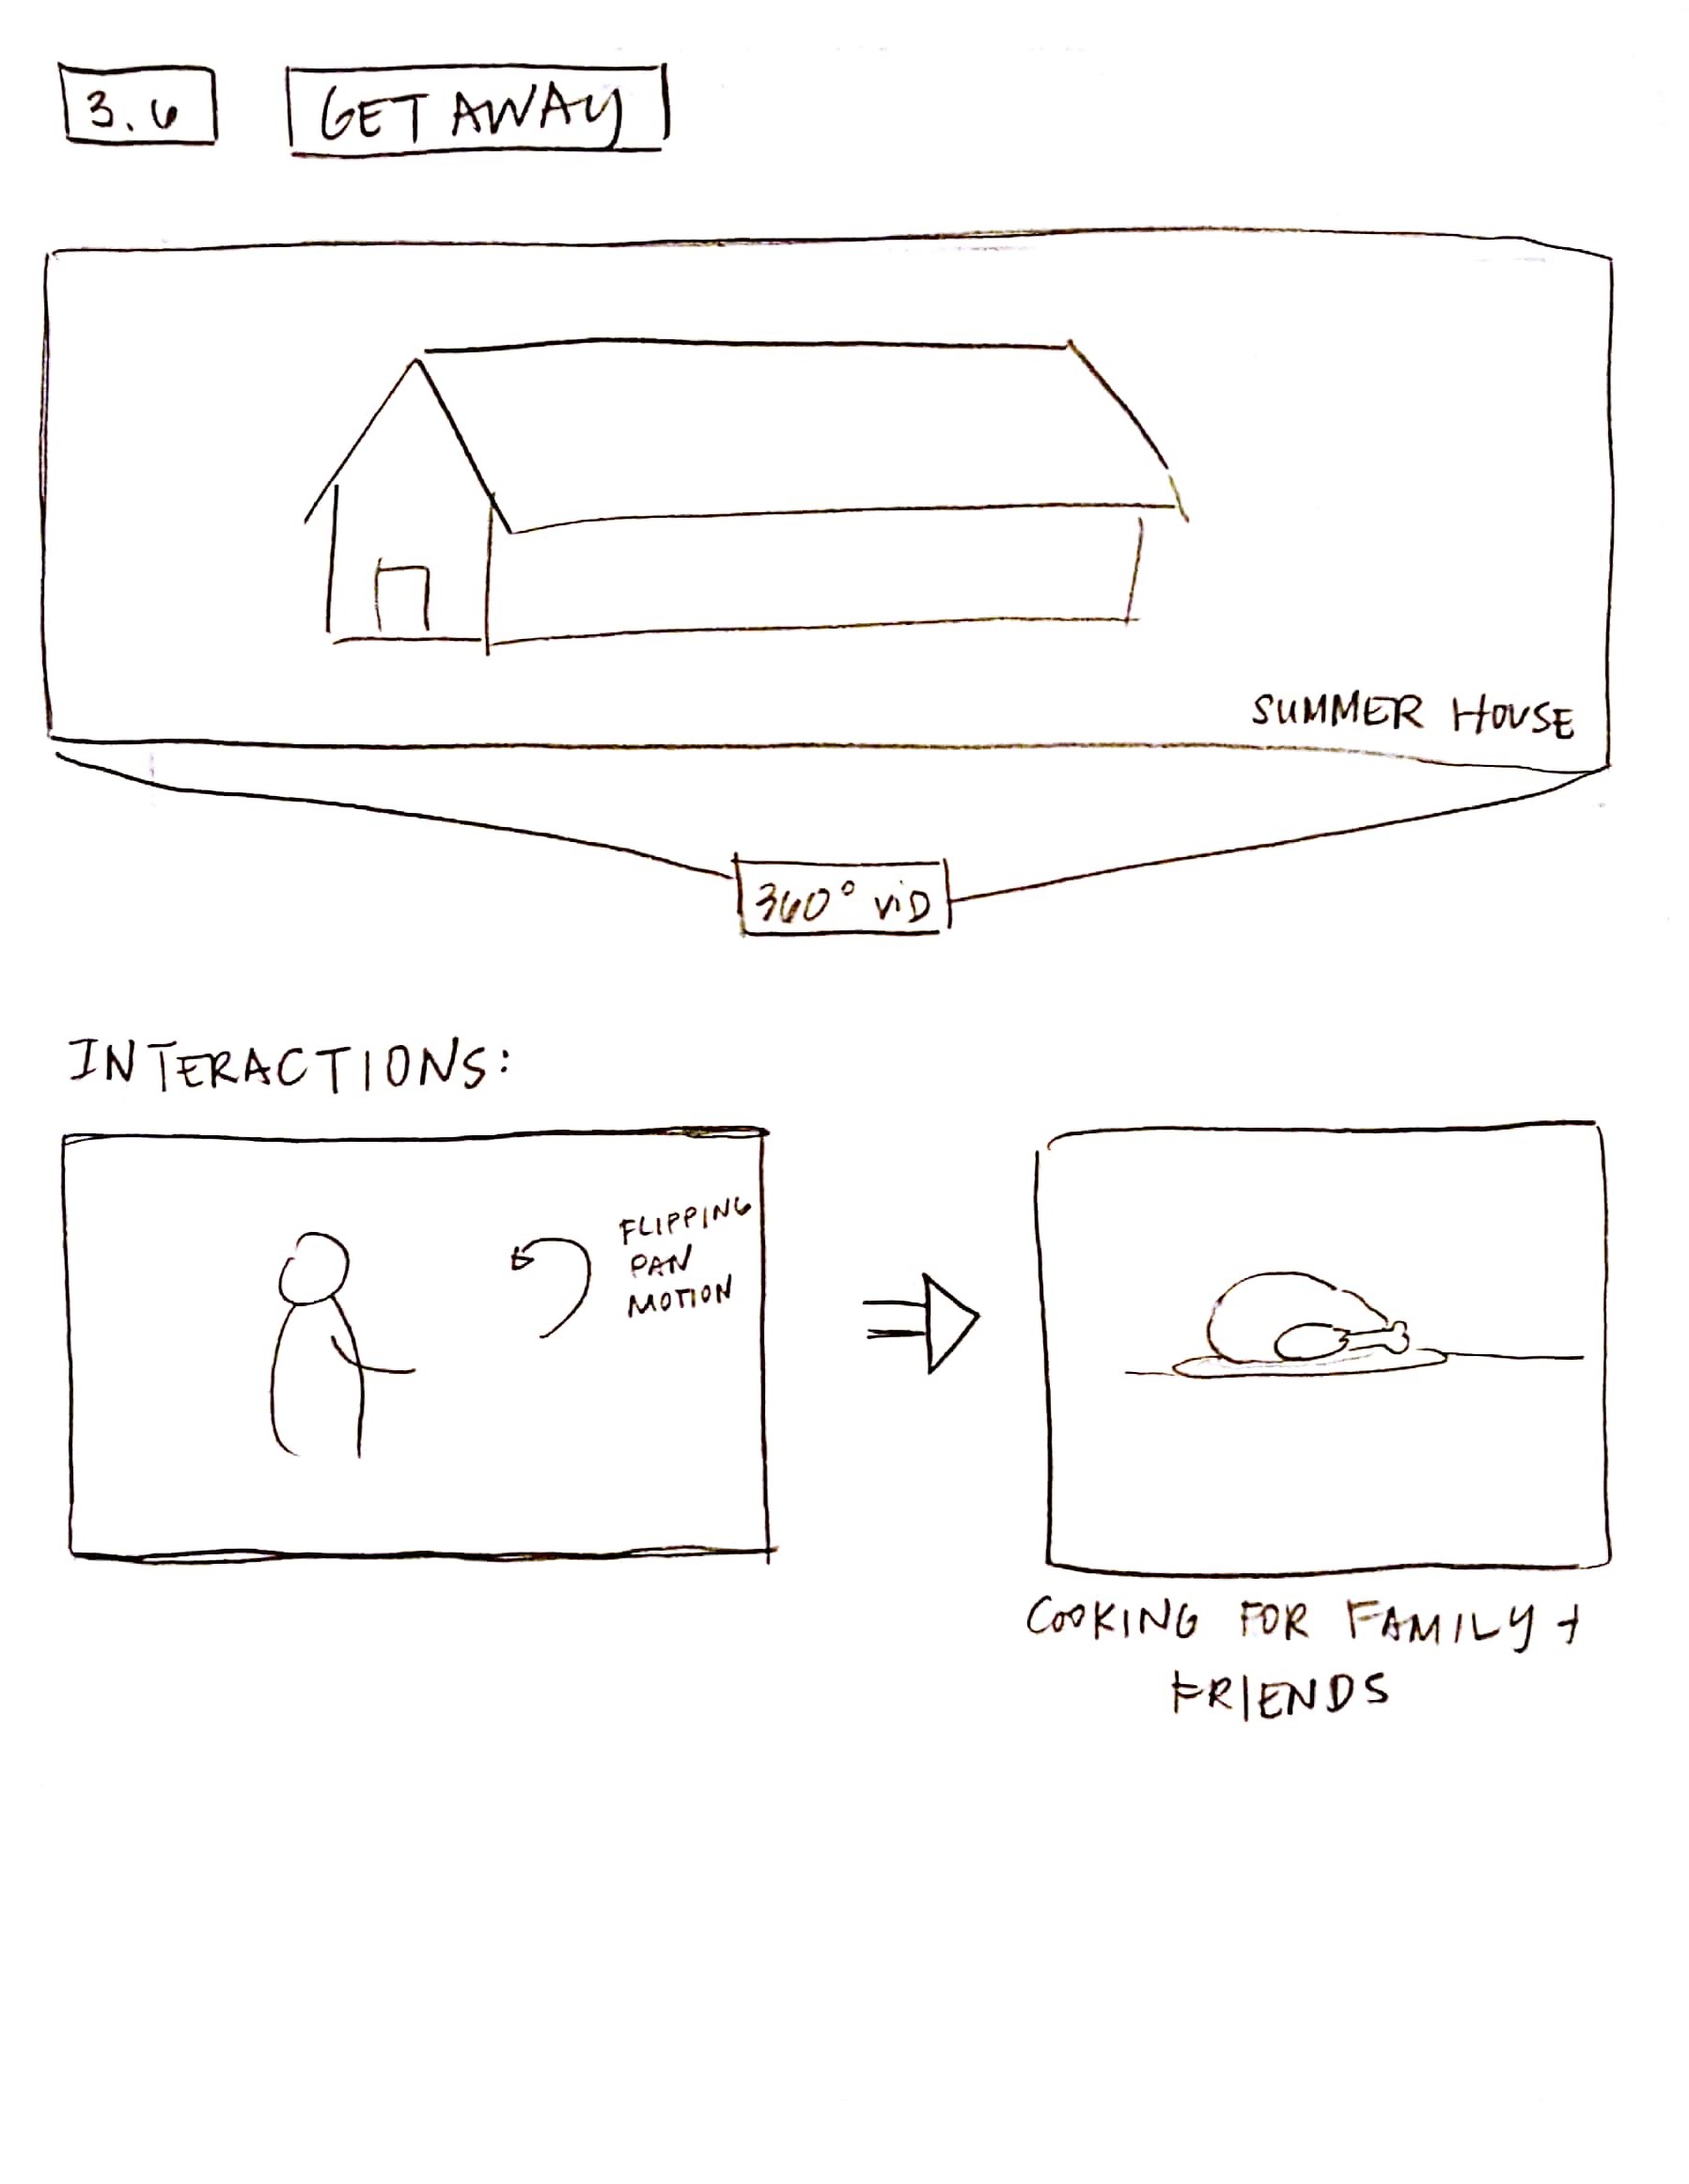 3.6
GETAWAY
SUMMER HOUSE
360° VID
INTERACTIONS:
FLIPPING
PAN
MOTION
COOKING FOR FAMILY +
FRIENDS